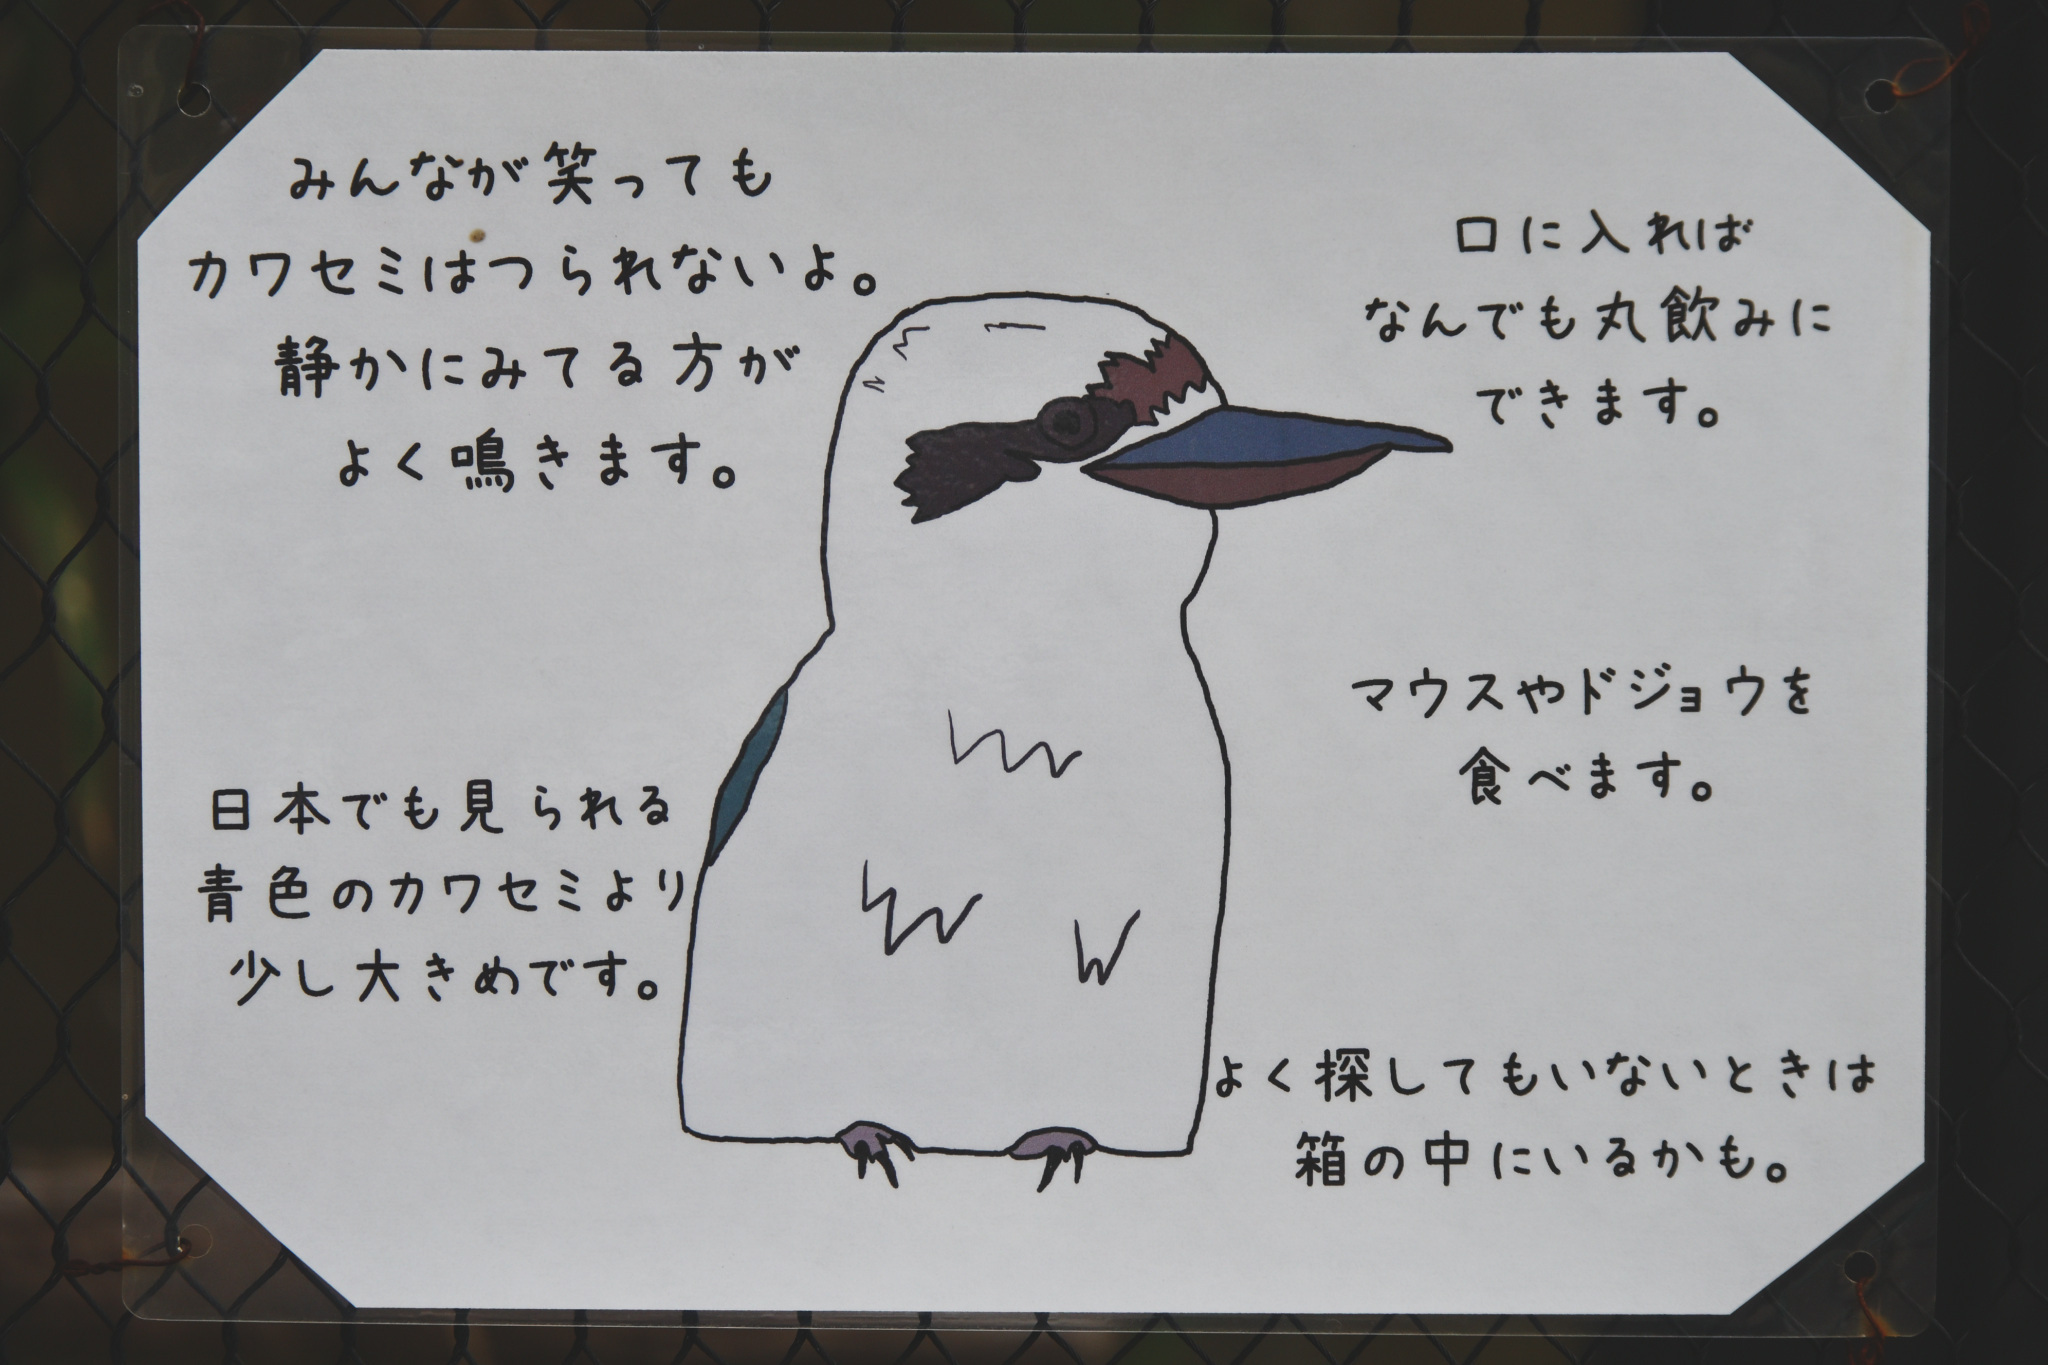 みんなが笑っても
カワセミはつられないよ。
静かにみてる方が
よく鳴きます。
口に入れば
なんでも丸飲みに
できます。
マウスやドジョウを
食べます。
日本でも見られる
青色のカワセミより
少し大きめです。
よく探してもいないときは
箱の中にいるかも。